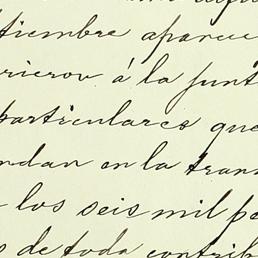 tiembre aparece
rieron á la junt
particulares que
ndan en la tran
los seis mil pe
s de toda contrib